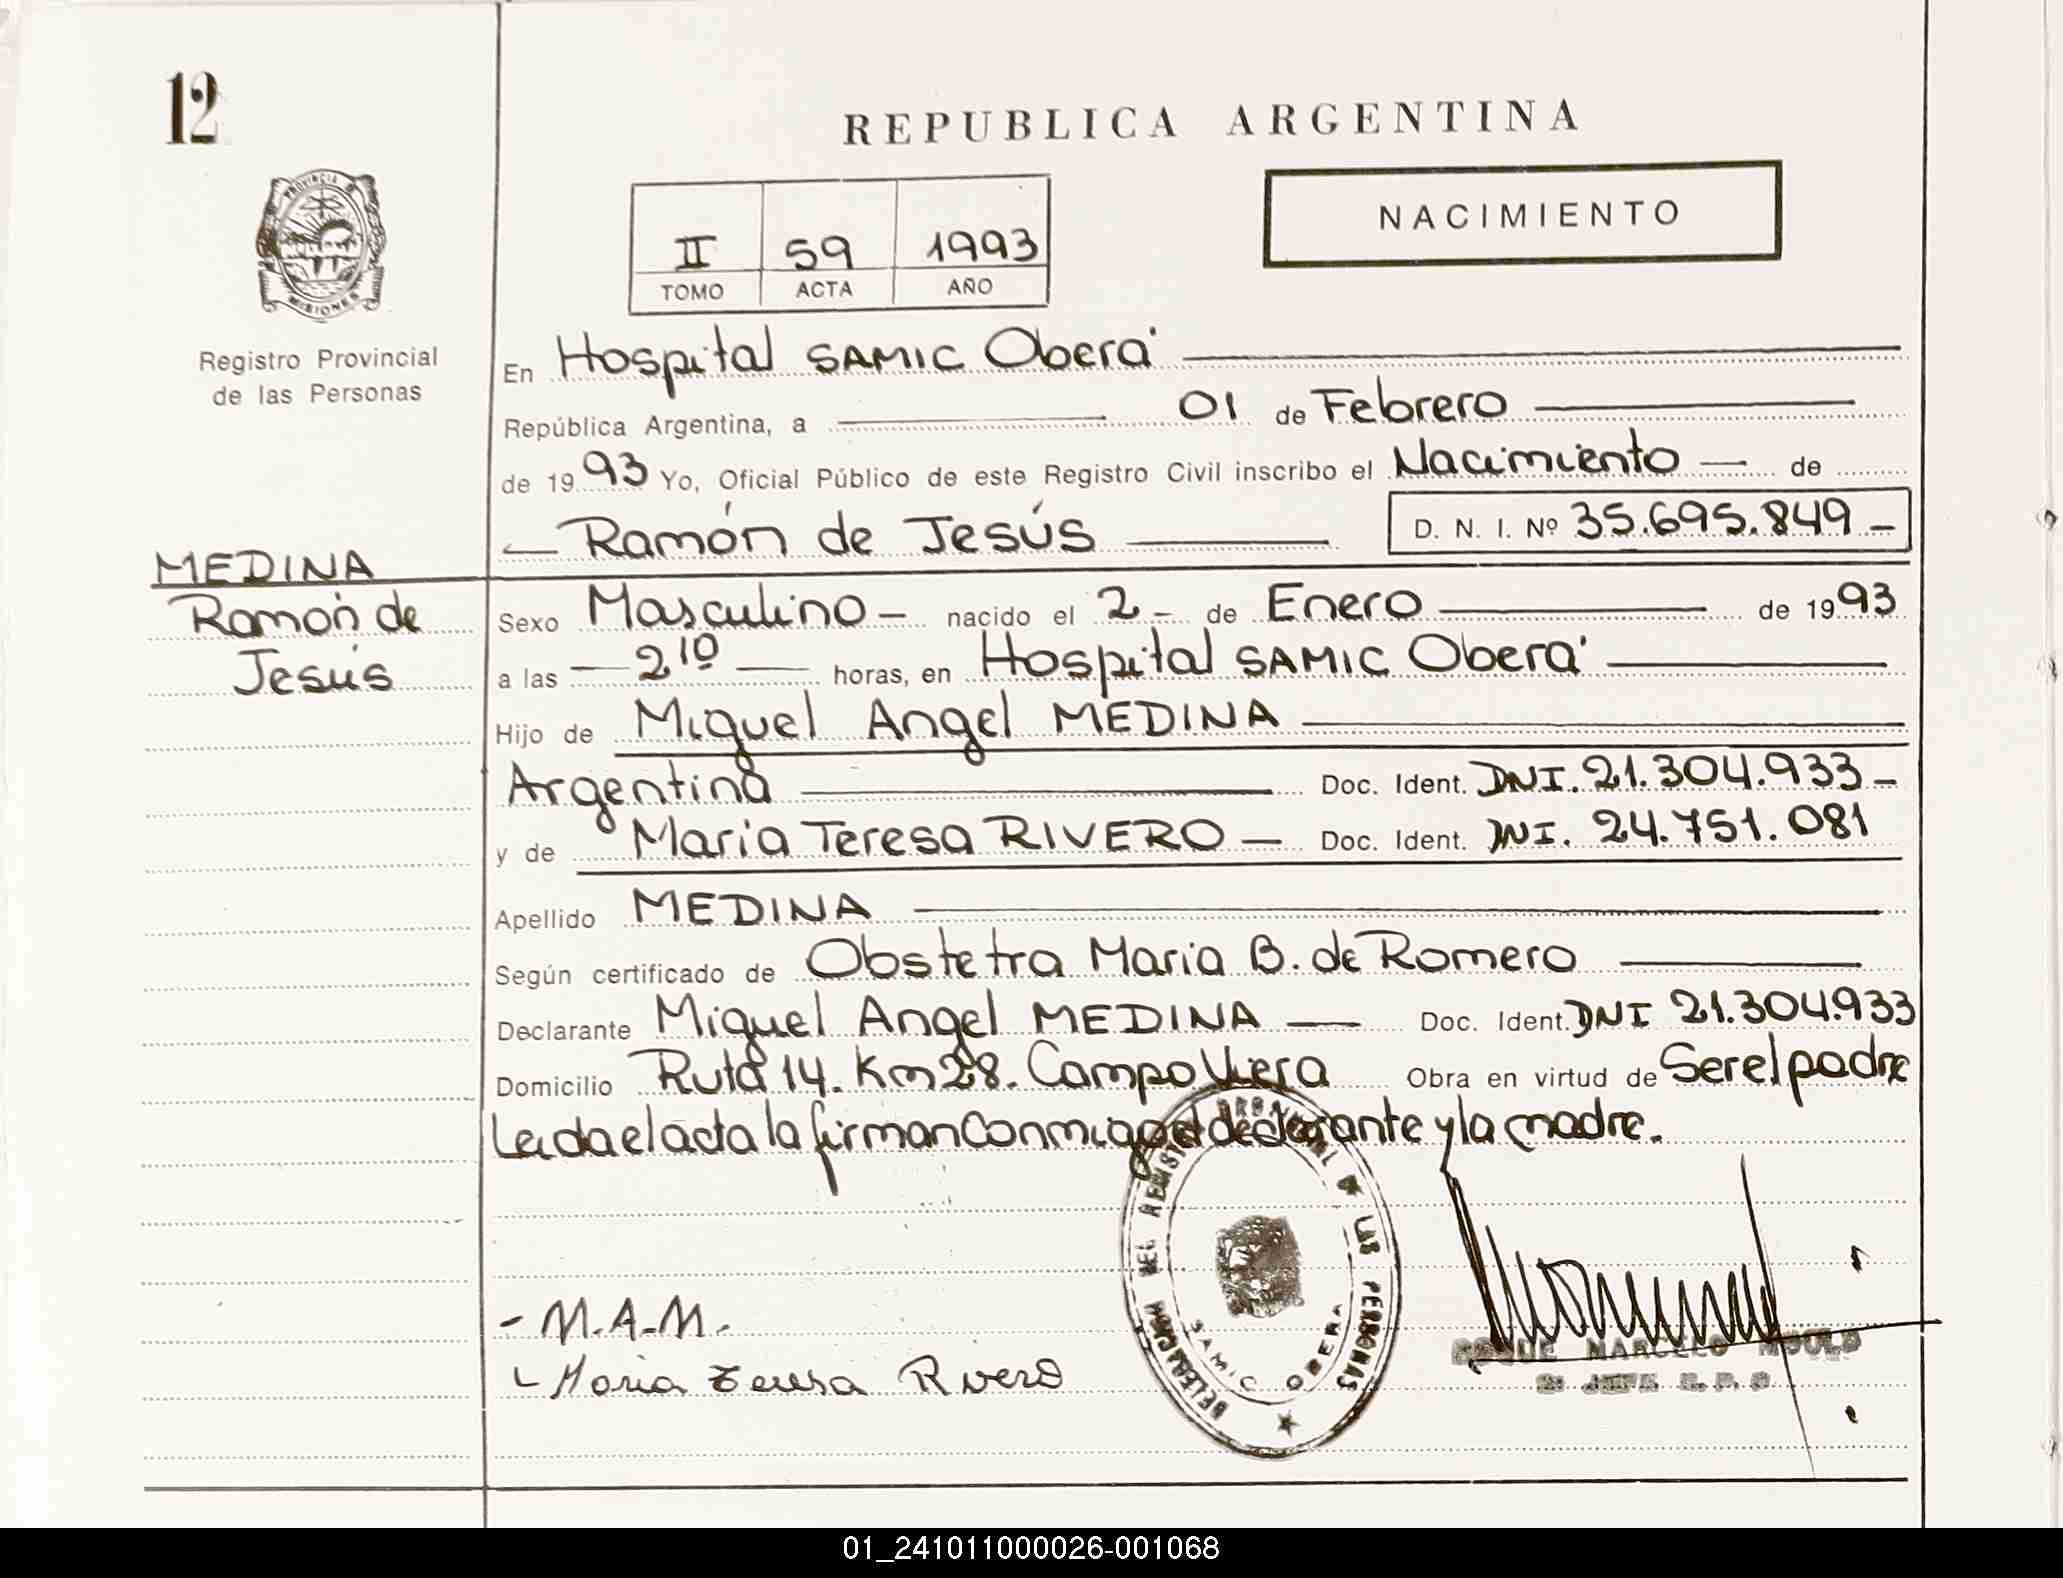 12
REPUBLICA ARGENTINA
PROVINCIA D
MISIONES
Registro Provincial
de las Personas
II 59 1993
TOMO ACTA AÑO
NACIMIENTO
En Hospital SAMIC Oberá
República Argentina, a 01 de Febrero
de 1993 Yo, Oficial Público de este Registro Civil inscribo el Nacimiento de
Ramón de Jesús D. N. I. Nº 35.695.849
MEDINA
Ramón de
Jesús
Sexo Masculino nacido el 2 de Enero de 1993
a las 2 10 horas, en Hospital SAMIC Oberá
Hijo de Miguel Angel MEDINA
Argentina Doc. Ident. DNI. 21.304.933
y de Maria Teresa RIVERO Doc. Ident. DNI. 24.751.081
Apellido MEDINA
Según certificado de Obstetra Maria B. de Romero
Declarante Miguel Angel MEDINA Doc. Ident. DNI 21.304.933
Domicilio Ruta 14. Km 28. Campo Viera Obra en virtud de Ser el padre
Leida el acta la firman Conmigo el declarante y la madre.
DELEGACION DEL REGISTRO PROVINCIAL D LAS PERSONAS
SAMIC OBERA
- M.A.M.
Maria Teresa Rivero
MARCELO
01_241011000026-001068